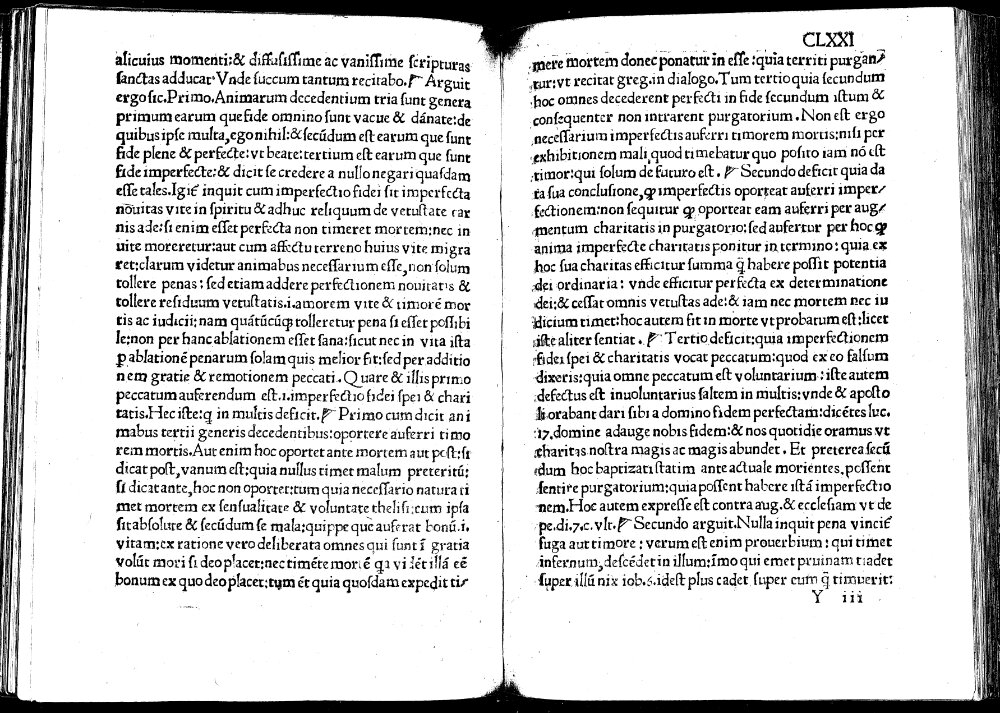 alicuius momenti:& diffusissime ac vanissime scripturas
sanctas adducat Vnde succum tantum recitabo. Arguit
ergo sic. Primo. Animarum decedentium tria sunt genera
primum earum que fide omnino sunt vacue & dānate:de
quibus ipse multa, ego nihil:& secūdum est earum que sunt
fide plene & perfecte:vt beate:tertium est earum que sunt
fide imperfecte:& dicit se credere a nullo negari quasdam
esse tales. Igiť inquit cum imperfectio fidei sit imperfecta
nouitas vite in spiritu & adhuc reliquum de vetustate car
nis ade:si enim esset perfecta non timeret mortem:nec in
uite moreretur:aut cum affectu terreno huius vite migra
ret:clarum videtur animabus necessarium esse, non solum
tollere penas: sed etiam addere perfectionem nouitatis &
tollere residuum vetustatis.i.amorem vite & timorē mor
tis ac iudicii:nam quātūcūqꝫ tolleretur pena si esset possibi
le:non per hanc ablationem esset sana:sicut nec in vita ista
ꝑ ablationē penarum solam quis melior fit:sed per additio
nem gratie & remotionem peccati. Quare & illis primo
peccatum auferendum est.i.imperfectio fidei spei & chari
tatis. Hec iste:q̄ in multis deficit. Primo cum dicit ani
mabus tertii generis decedentibus:oportere auferri timo
rem mortis. Aut enim hoc oportet ante mortem aut post:si
dicat post, vanum est:quia nullus timet malum preteritū:
si dicat ante, hoc non oportet:tum quia necessario natura ti
met mortem ex sensualitate & voluntate thelisi:cum ipsa
sit absolute & secūdum se mala:quippe que auferat bonū.i.
vitam:ex ratione vero deliberata omnes qui sunt ī gratia
volūt mori si deo placet:nec timēte mortē illā eē
bonum ex quo deo placet:tum et quia quosdam expedit ti/
CLXXI
mere mortem donec ponatur in esse:quia territi purgan/
tur:vt recitat greg.in dialogo. Tum tertio quia secundum
hoc omnes decederent perfecti in fide secundum istum &
consequenter non intrarent purgatorium. Non est ergo
necessarium imperfectis auferri timorem mortis:nisi per
exhibitionem mali, quod timebatur quo posito iam nō est
timor:qui solum de futuro est. Secundo deficit quia da
ta sua conclusione, ꝙ imperfectis oporteat auferri imper/
fectionem:non sequitur ꝙ oporteat eam auferri per aug/
mentum charitatis in purgatorio:sed aufertur per hoc ꝙ
anima imperfecte charitatis ponitur in termino: quia ex
hoc sua charitas efficitur summa q̄ habere possit potentia
dei ordinaria: vnde efficitur perfecta ex determinatione
dei:& cessat omnis vetustas ade:& iam nec mortem nec iu
dicium timet:hoc autem fit in morte vt probatum est:licet
iste aliter sentiat. Tertio deficit:quia imperfectionem
fidei spei & charitatis vocat peccatum:quod ex eo falsum
dixeris:quia omne peccatum est voluntarium: iste autem
defectus est inuoluntarius saltem in multis:vnde & aposto
li orabant dari sibi a domino fidem perfectam:dicētes luc.
17. domine adauge nobis fidem:& nos quotidie oramus vt
charitas nostra magis ac magis abundet. Et preterea secū
dum hoc baptizati statim ante actuale morientes, possent
sentire purgatorium:quia possent habere istā imperfectio
nem. Hoc autem expresse est contra aug.& ecclesiam vt de
pe.di.7.c.vlt. Secundo arguit. Nulla inquit pena vincit́
fuga aut timore: verum est enim prouerbium: qui timet
infernum, descēdet in illum:īmo qui emet pruinam cadet
super illū nix iob.6.idest plus cadet super eum q̄ timuerit:
Y iii